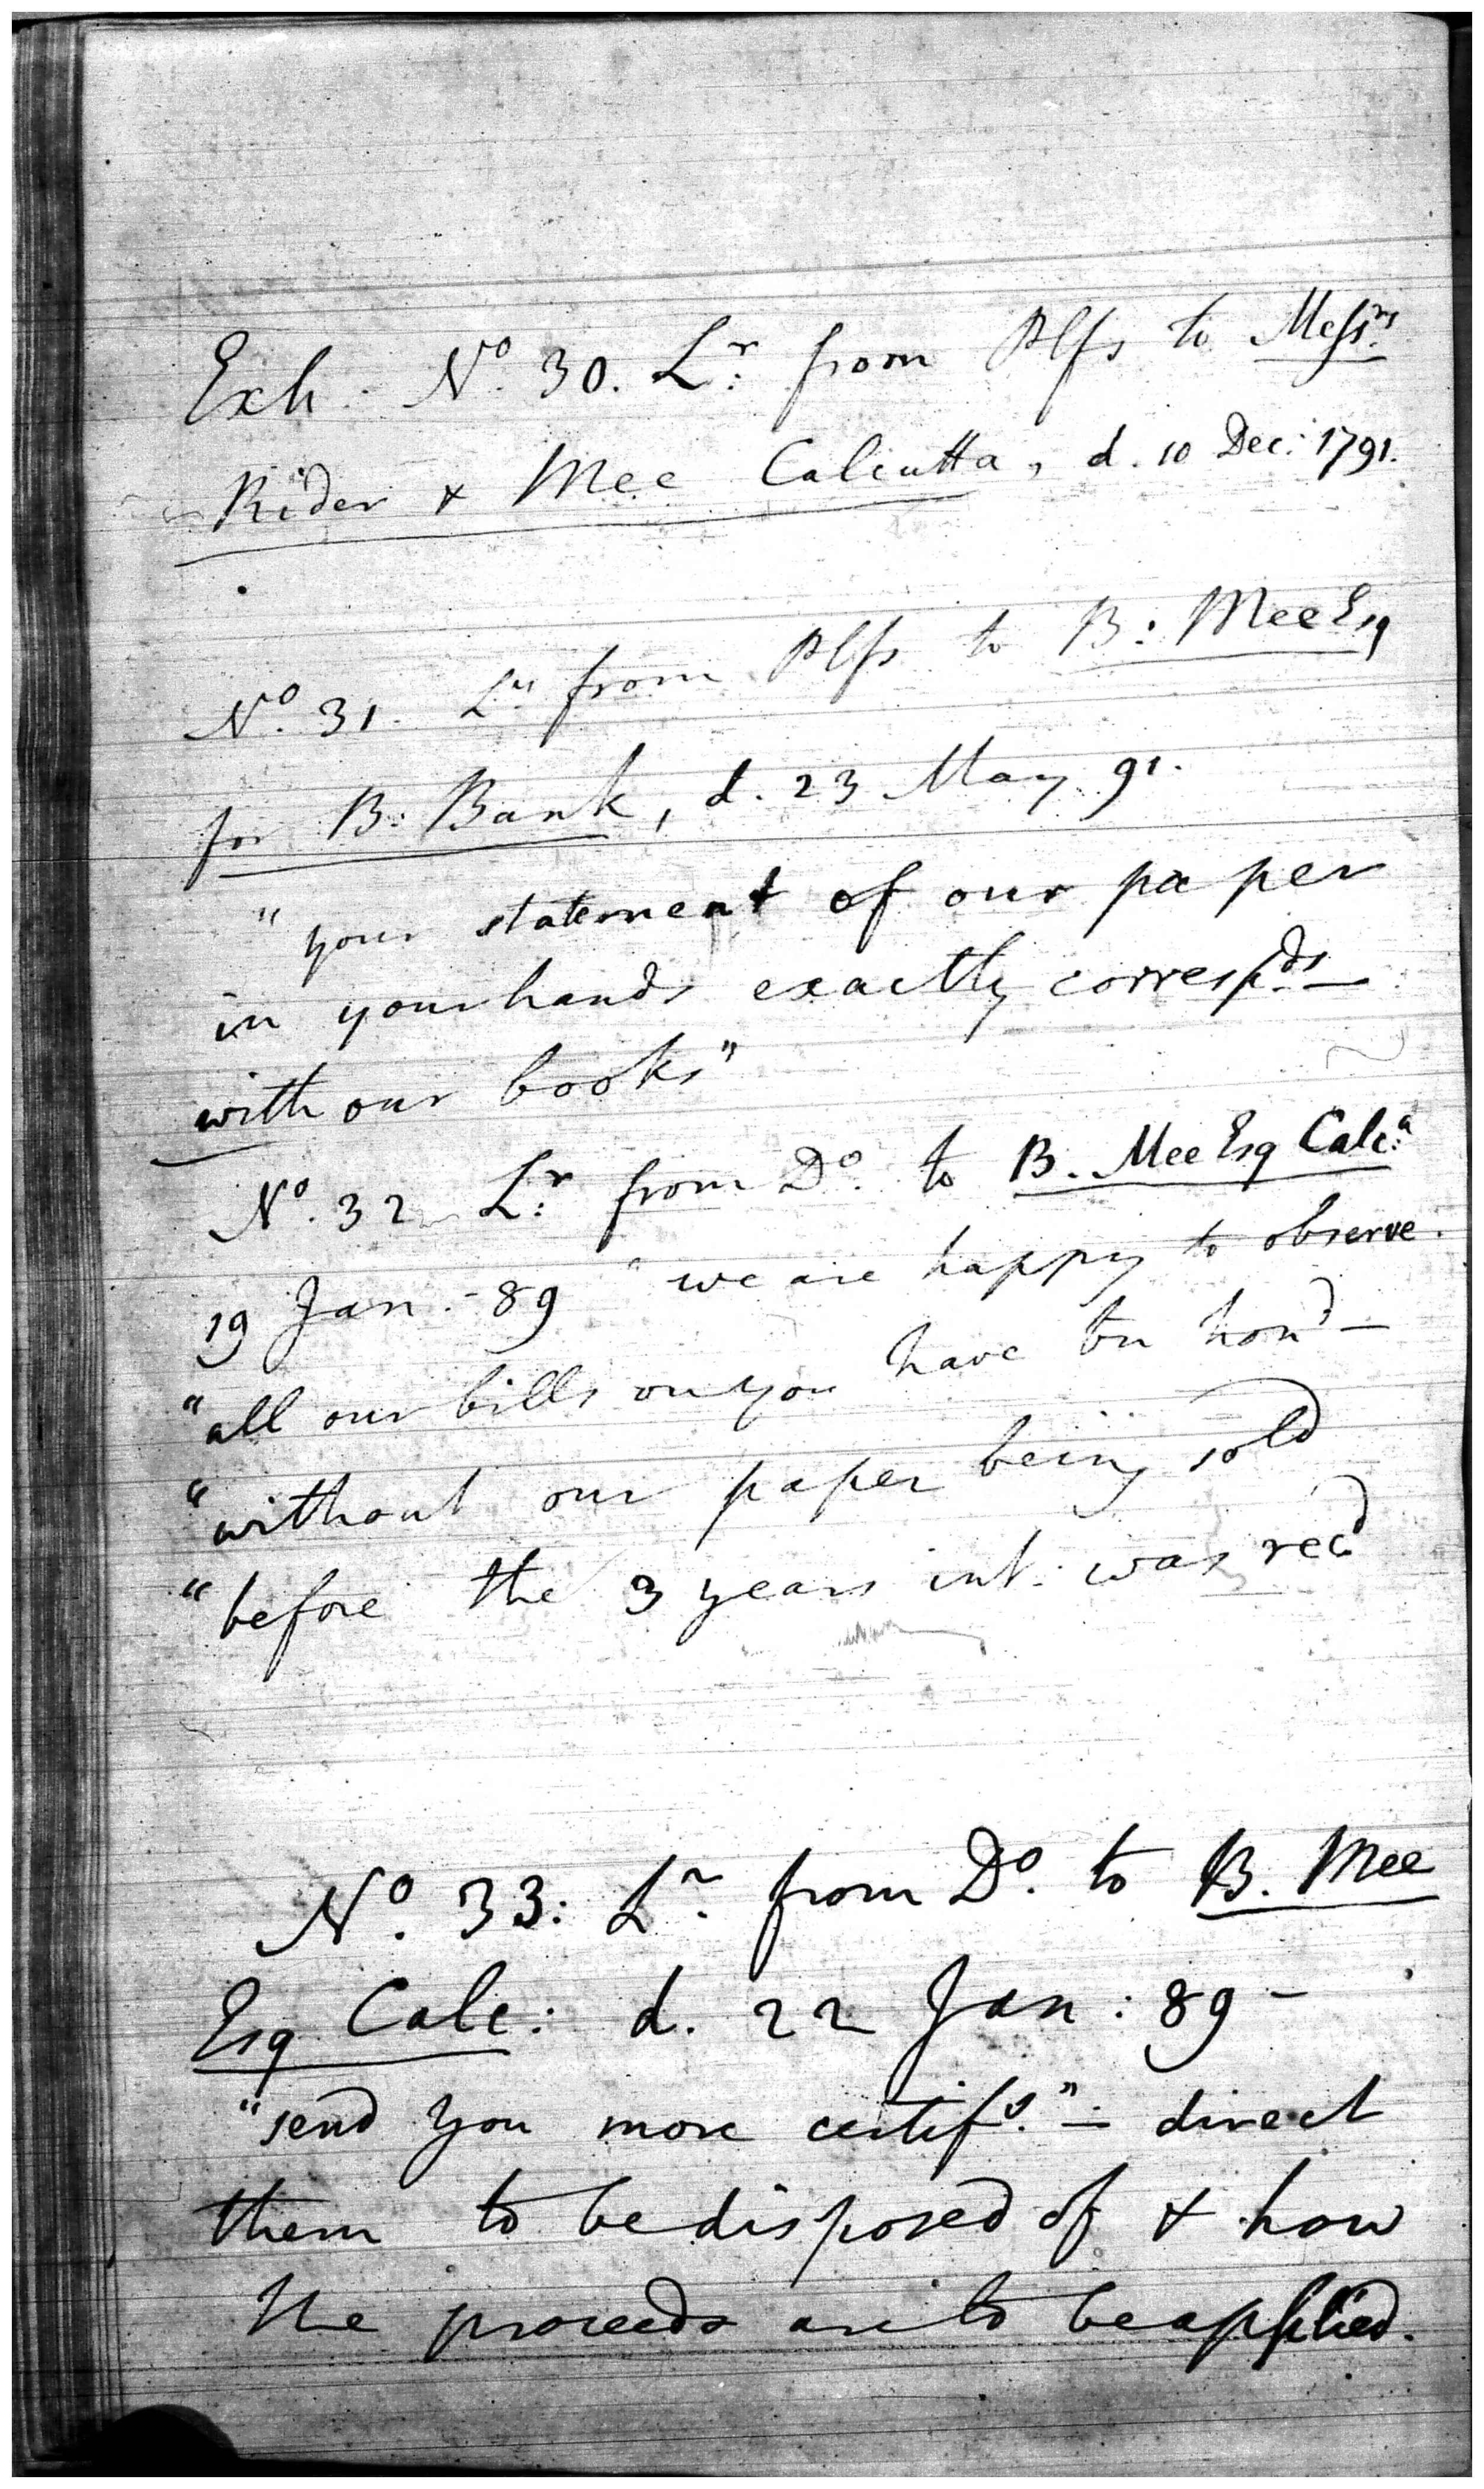 Exh. No. 30. Lr: from Plfs to Messrs.
Rider & Mee Calcutta, d. 10 Dec: 1791.
No. 31. Lr from Plfs to B: Mee Esq
for B: Bank, d. 23 May 91.
"your statement of our paper
in your hands exactly correspds. —
with our books"
No. 32 Lr: from Do. to B. Mee Esq Calc:a
19 Jan. - 89 "we are happy to observe.
"all our bills on you have bn hond —
"without our paper being sold
"before the 3 years int: was recd
No. 33: Lr. from Do. to B. Mee
Esq Calc: d. 22 Jan: 89 -
"send you more certifs." — direct
them to be disposed of & how
the proceeds are to be applied.